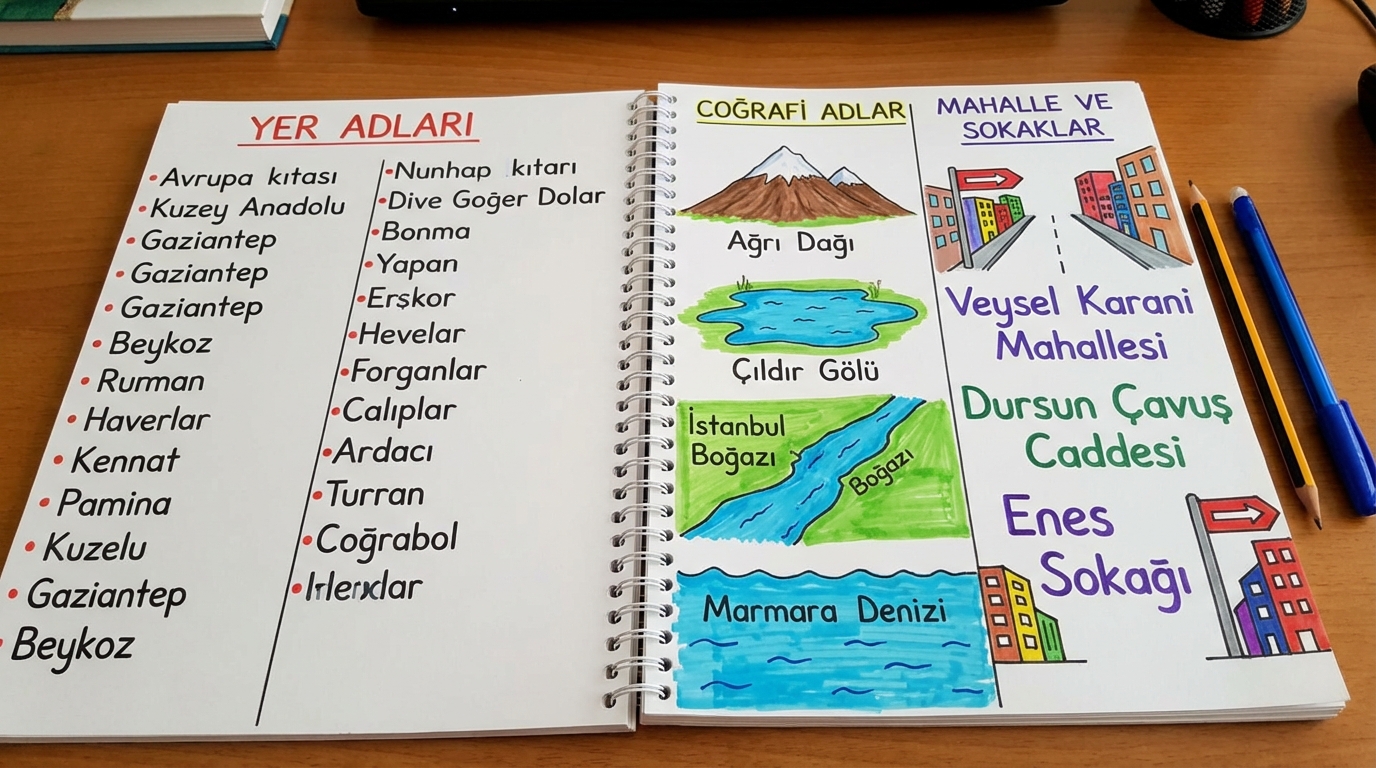 YER ADLARI
Avrupa kıtası
Kuzey Anadolu
Gaziantep
Gaziantep
Gaziantep
Beykoz
Ruman
Haverlar
Kennat
Pamina
Kuzelu
Gaziantep
Beykoz
Nunhap kıtarı
Dive Goğer Dolar
Bonma
Yapan
Erşkor
Hevelar
Forganlar
Calıplar
Ardacı
Turran
Coğrabol
COĞRAFİ ADLAR
Ağrı Dağı
Çıldır Gölü
İstanbul
Boğazı
Boğazı
Marmara Denizi
MAHALLE VE
SOKAKLAR
Veysel Karani
Mahallesi
Dursun Çavuş
Caddesi
Enes
Sokağı